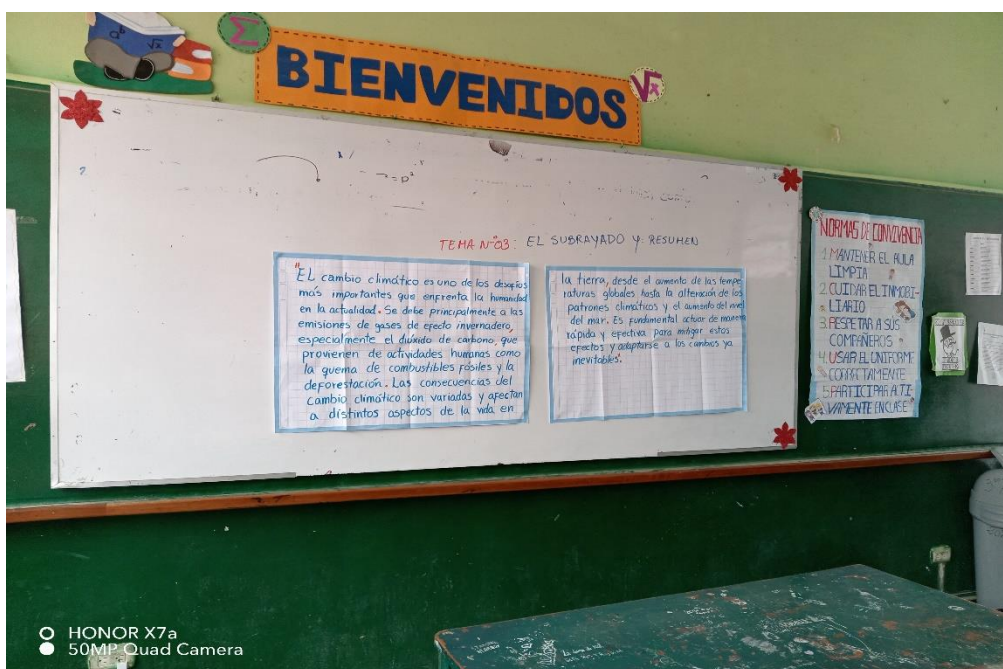 BIENVENIDOS
Σ
√x
TEMA N°03: EL SUBRAYADO Y RESUMEN
"EL cambio climático es uno de los desafíos
más importantes que enfrenta la humanidad
en la actualidad. Se debe principalmente a las
emisiones de gases de efecto invernadero,
especialmente el dióxido de carbono, que
provienen de actividades humanas como
la quema de combustibles fósiles y la
deforestación. Las consecuencias del
cambio climático son variadas y afectan
a distintos aspectos de la vida en
la tierra, desde el aumento de las tempe
raturas globales hasta la alteración de los
patrones climáticos y el aumento del nivel
del mar. Es fundamental actuar de manera
rápida y efectiva para mitigar estos
efectos y adaptarse a los cambios ya
inevitables".
NORMAS DE CONVIVENCIA
1. MANTENER EL AULA
LIMPIA
2. CUIDAR EL INMOBI-
LIARIO
3. RESPETAR A SUS
COMPAÑEROS
4. USAR EL UNIFORME
CORRECTAMENTE
5. PARTICIPAR ATI-
VAMENTE EN CLASE
HONOR X7a
50MP Quad Camera